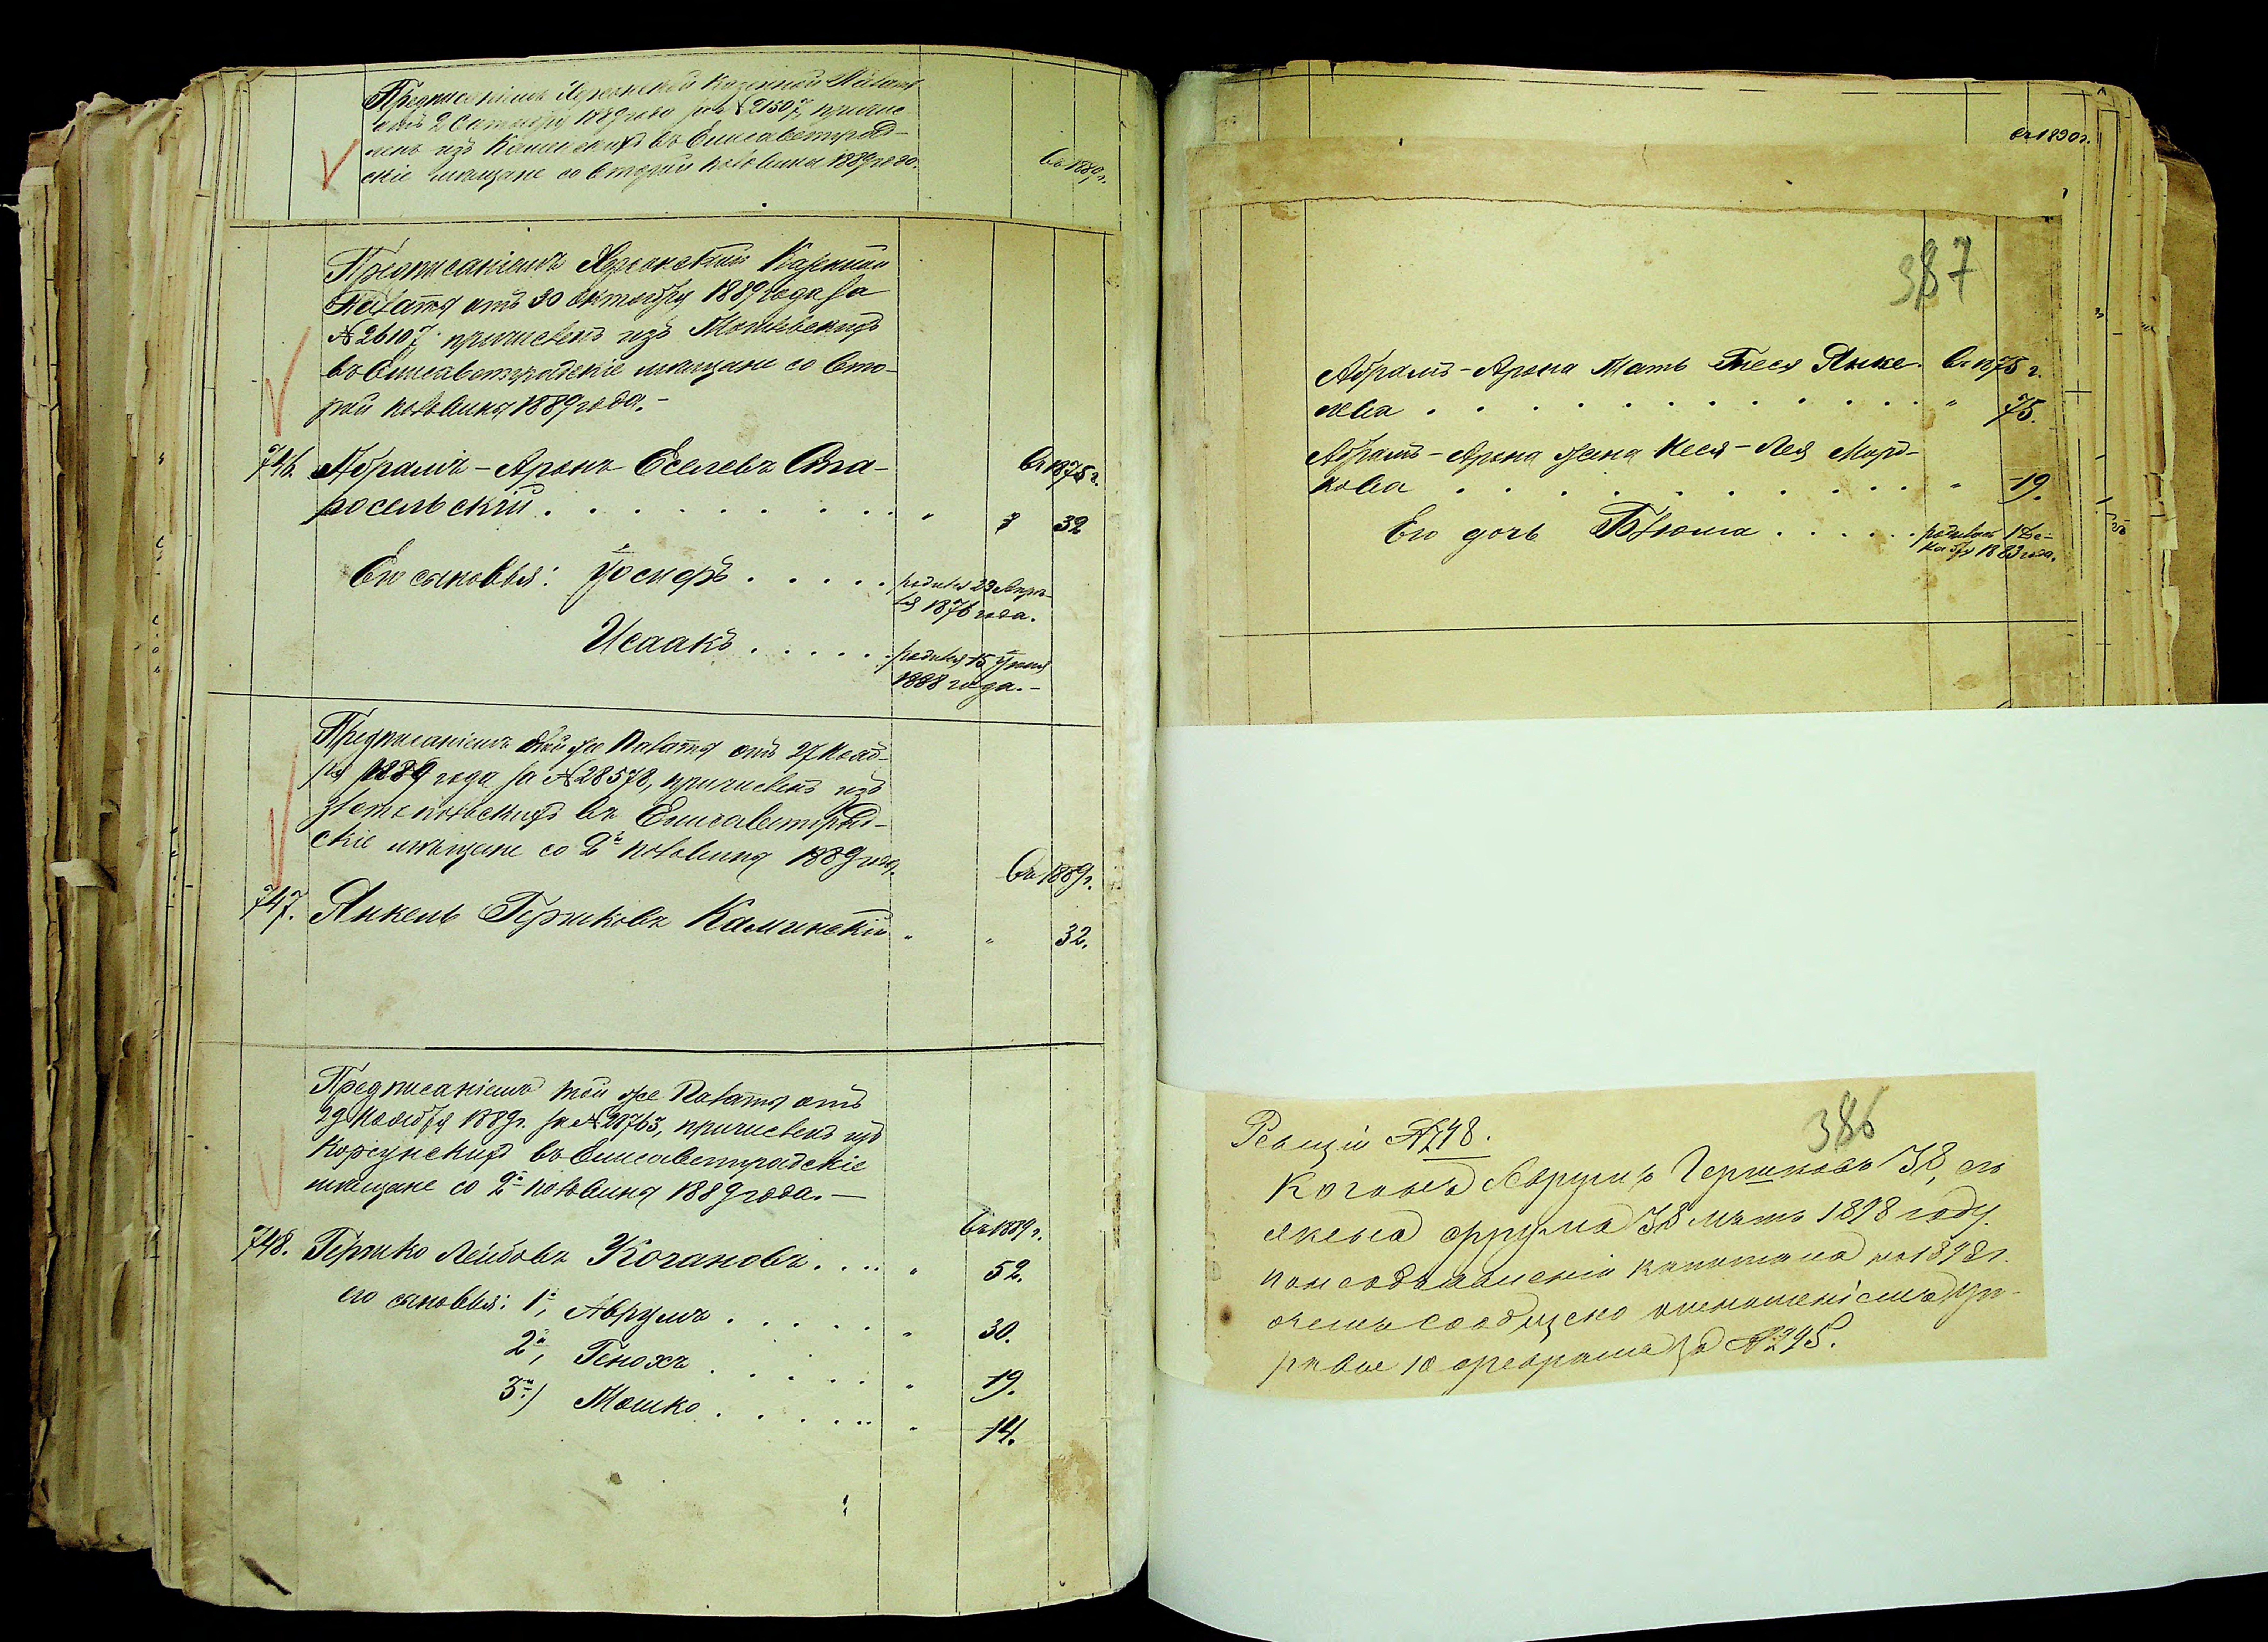 Предписаніемъ Херсонской Казенной Палаты
отъ 2 Октября 1889 года за №21507, причис
ленъ изъ въ Елисаветград-
скіе мѣщане со второй половины 1889 года.
въ 1889 г.
Предписаніемъ Херсонской Казенной
Палаты отъ 30 октября 1889 года за
№ 26107 причисленъ изъ
въ Елисаветградскіе мѣщане со вто-
рой половины 1889 года.-
746. Абрамъ-Аронъ Еселевъ Ста-
въ 1875 г.
росельскій . . . . . . . . . " 32
Его сыновья: Іосифъ . . . . . родился 23 Апрѣ-
ля 1876 года.
Исаакъ . . . . . родился 15 Іюня
1888 года.-
Предписаніемъ той же Палаты отъ 27 Нояб-
ря 1889 года за №28578, причисленъ изъ
въ Елисаветград-
скіе мѣщане со 2й половины 1889 года.
въ 1889 г.
747. Янкель Гершковъ Каминскій " " 32.
Предписаніемъ той же Палаты отъ
29 Ноября 1889 г. за №28763, причисленъ изъ
Корсунскихъ въ Елисаветградскіе
мѣщане со 2й половины 1889 года.—
въ 1889 г.
748. Гершко Лейбовъ Когановъ . . . . " 52.
его сыновья: 1й, Аврумъ . . . . . " 30.
2й, Генохъ . . . . . " 19.
3й) Мошко . . . . . " 14.
въ 1890 г.
387
Абрамъ-Арона Мать Песя Янке- въ 1875 г.
лева . . . . . . . . . . " 75.
Абрамъ-Арона жена Неся-Лея Морд-
кова . . . . . . . . . . " 19.
Его дочь Блюма . . . . . родилась 1 Де-
кабря 1883 года.
386
Ревизіи №748.
Коганъ Аврумъ Гершковъ 38, его
жена Фрума 38 лѣтъ 1898 году.
капитала на 1898 г.
о чемъ сообщено отношеніемъ Уп-
равы 10 февраля за №295.